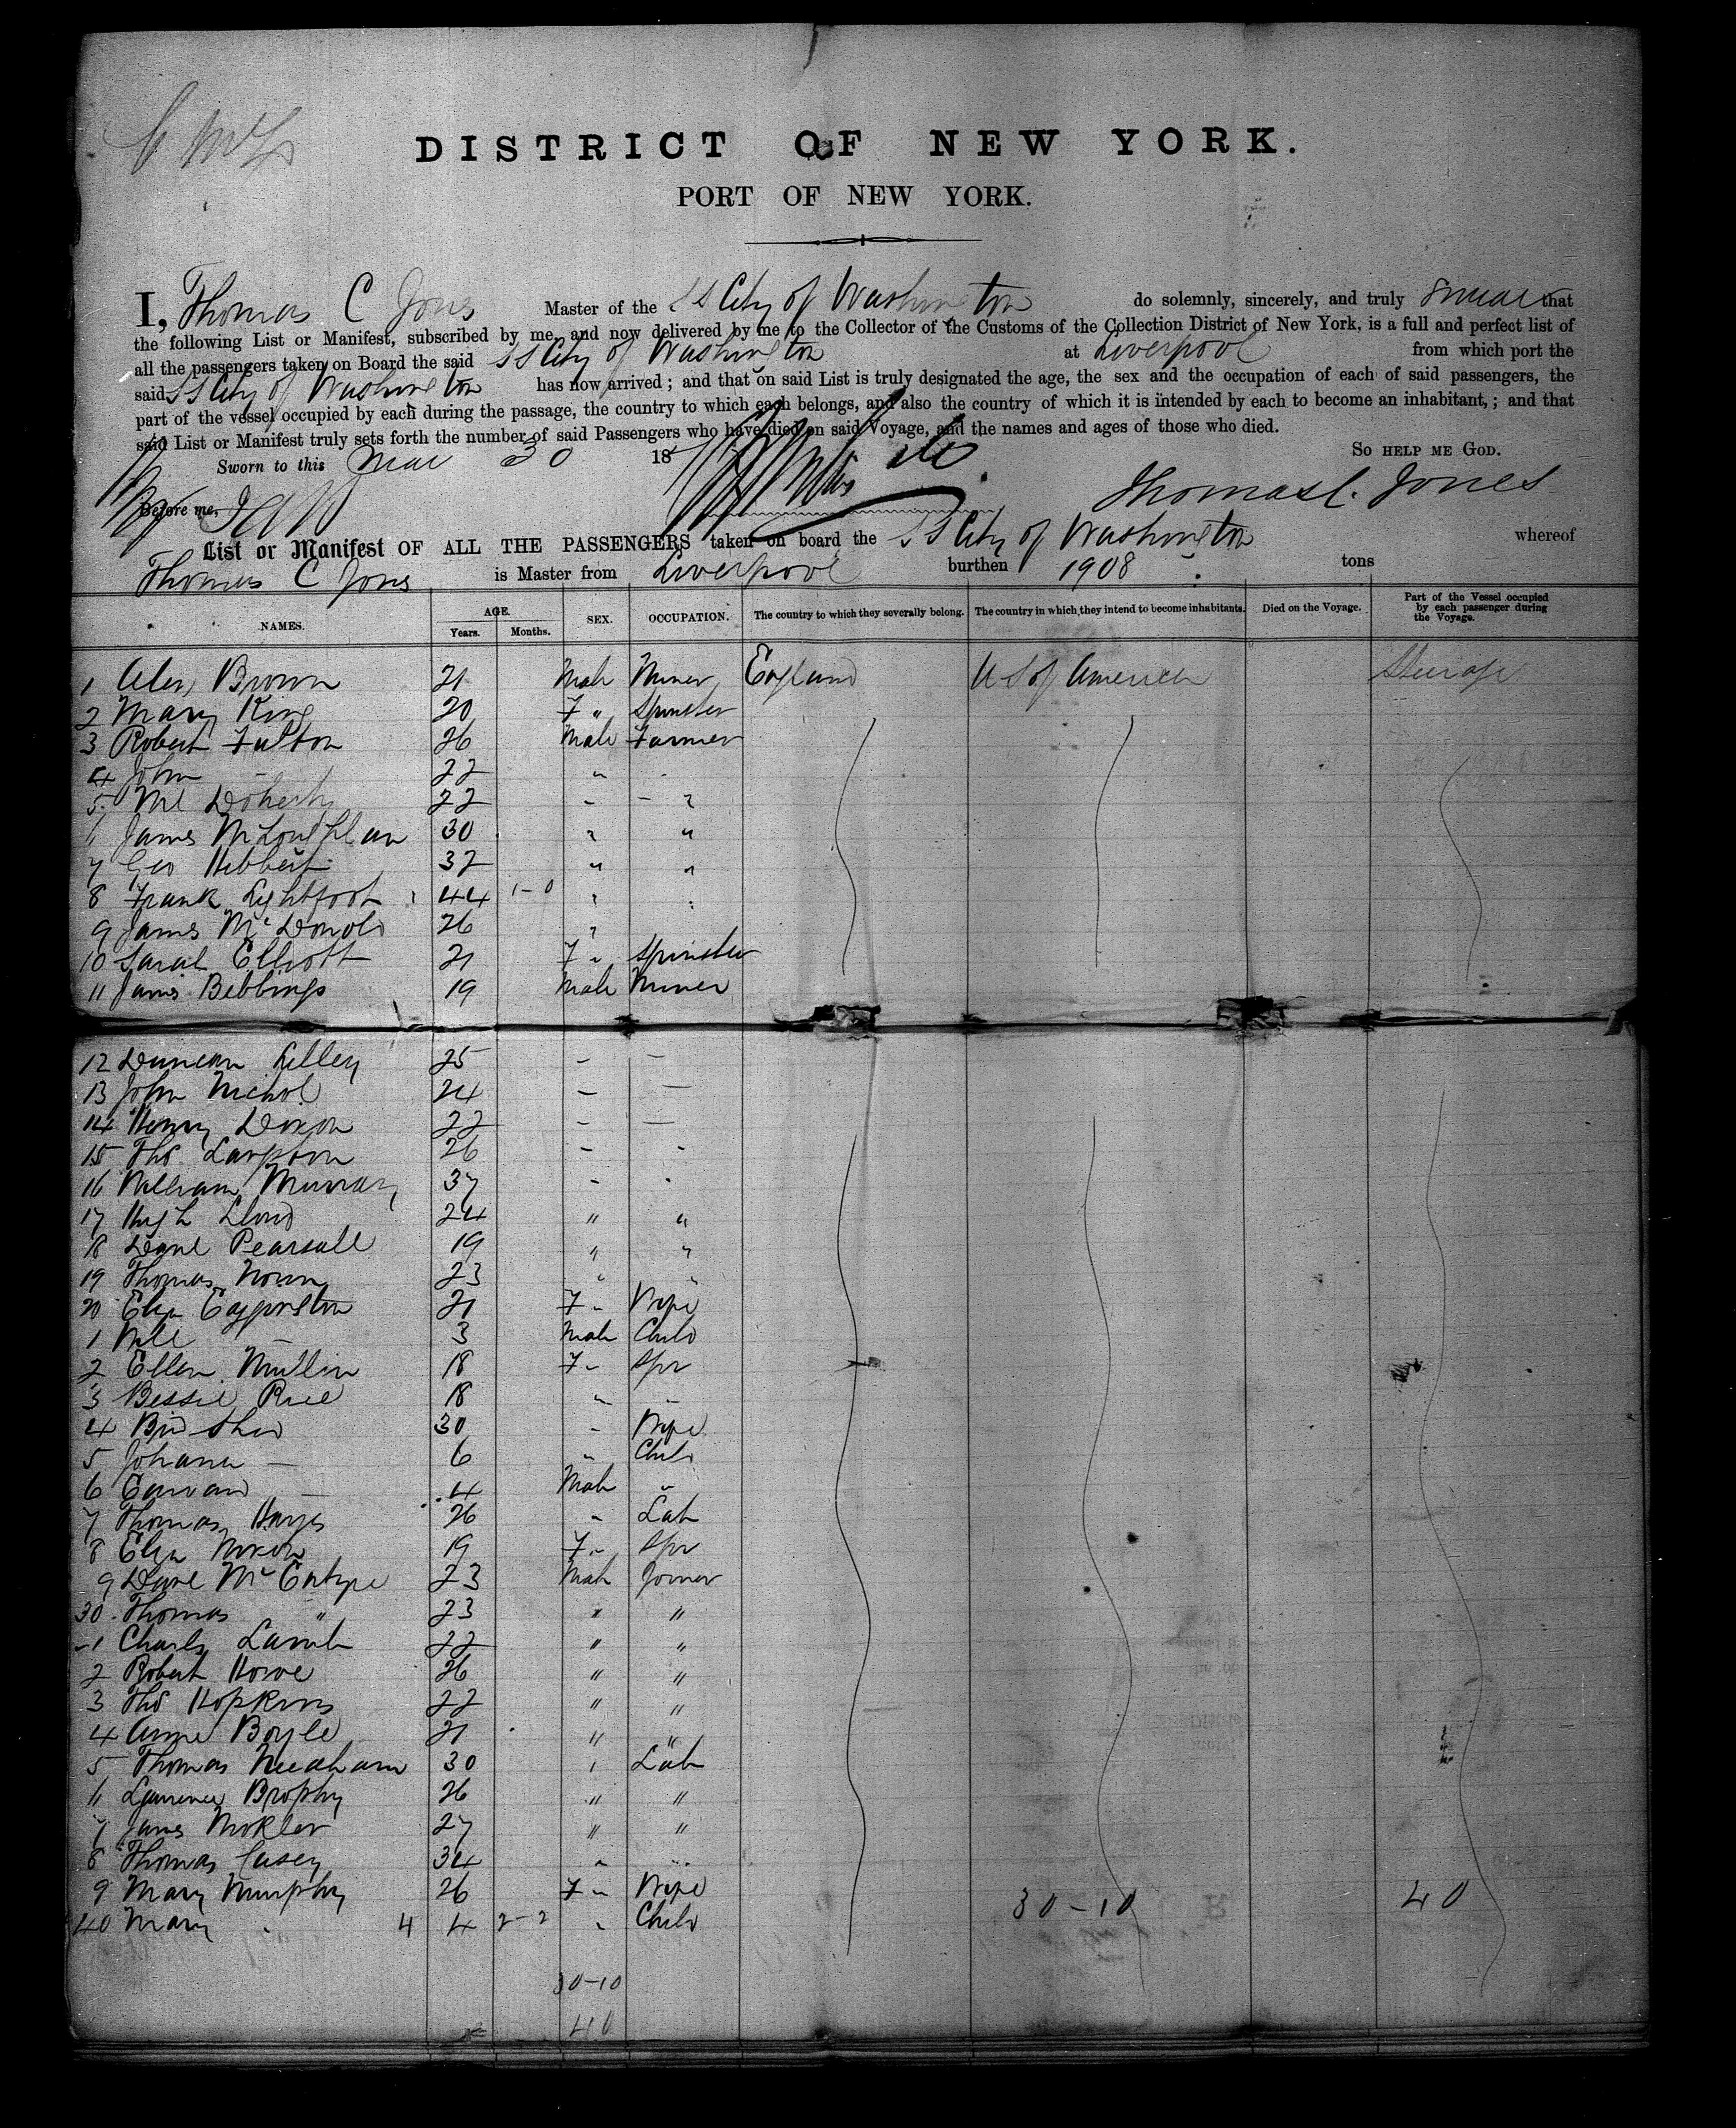 DISTRICT OF NEW YORK.
PORT OF NEW YORK.
I, Thomas C Jones Master of the SS City of Washington do solemnly, sincerely, and truly swear that
the following List or Manifest, subscribed by me, and now delivered by me to the Collector of the Customs of the Collection District of New York, is a full and perfect list of
all the passengers taken on Board the said SS City of Washington at Liverpool from which port the
said SS City of Washington has now arrived ; and that on said List is truly designated the age, the sex and the occupation of each of said passengers, the
part of the vessel occupied by each during the passage, the country to which each belongs, and also the country of which it is intended by each to become an inhabitant, ; and that
said List or Manifest truly sets forth the number of said Passengers who have died on said Voyage, and the names and ages of those who died.
SO HELP ME GOD.
Sworn to this Mar 30 18
Thomas C. Jones
Before me,
List or Manifest OF ALL THE PASSENGERS taken on board the SS City of Washington whereof
Thomas C Jones is Master from Liverpool burthen 1908 tons
NAMES. AGE. Years. Months. SEX. OCCUPATION. The country to which they severally belong. The country in which they intend to become inhabitants. Died on the Voyage. Part of the Vessel occupied by each passenger during the Voyage.
1 Alex Brown 21 Male Miner England U S of America Steerage
2 Mary King 20 F " Spinster
3 Robert Fulton 26 Male Farmer
4 John - 22 " "
5 Ml Doherty 22 " - "
6 James McLoughlan 30 " "
7 Geo Hibbert 32 " "
8 Frank Lightfoot 44 1-0 " "
9 James McDonold 26 "
10 Sarah Elliott 21 F " Spinster
11 James Bebbings 19 Male Miner
12 Duncan Lilley 25 - -
13 John Nichol 24 - -
14 Henry Dixon 22 - -
15 Thos 26 - -
16 William Murray 37 - -
17 Hugh Lloyd 24 " "
18 Danl Pearsall 19 " "
19 Thomas 23 " "
20 Eliza Egginton 21 F " Wife
1 Will - 3 Male Child
2 Ellen Mullin 18 F " Spr
3 Bessie Rice 18 " -
4 Bid Shea 30 " Wife
5 Johana - 6 " Child
6 Edward - 4 Male "
7 Thomas Hayes 26 " Lab
8 Eliza Nixon 19 F " Spr
9 Danl McEntyre 23 Male Joiner
30 Thomas " 23 " "
1 Charles Lamb 22 " "
2 Robert Howe 26 " "
3 Thos Hopkins 22 " "
4 Anne Boyle 21 " "
5 Thomas Needham 30 " Lab
6 Lawrence Brophy 26 " "
7 James Mokler 27 " "
8 Thomas Casey 34 " "
9 Mary Murphy 26 F " Wife 30-10 40
40 Mary " 4 4 2-2 " Child
30-10
40